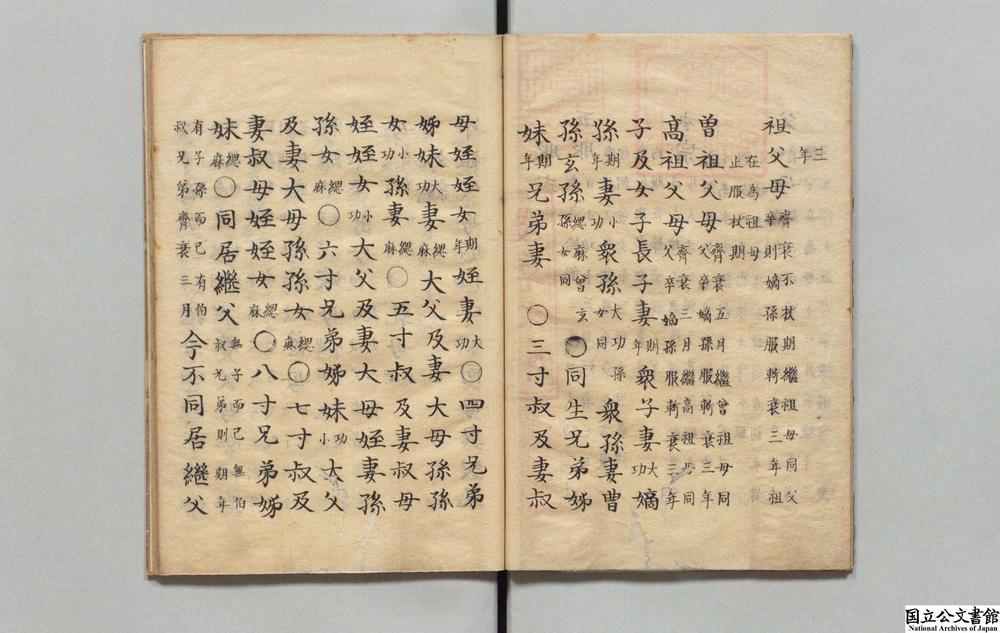 三年
祖父母齊衰不杖期繼祖母同父卒則嫡孫服斬衰三年祖
在為祖母止服杖期
曽祖父母齊衰五月繼曽祖母同父卒嫡孫服斬衰三年
高祖父母齊衰三月繼高祖母同父卒嫡孫服斬衰三年
子及女子長子妻期年衆子妻大功嫡
孫期年妻小功衆孫大功孫女同衆孫妻曽
孫玄孫緦麻曽玄孫女同○同生兄弟姊
妹期年兄弟妻○三寸叔及妻叔
母姪姪女期年姪妻大功○四寸兄弟
姊妹大功妻緦麻大父及妻大母孫孫
女小功孫妻緦麻○五寸叔及妻叔母
姪姪女小功大父及妻大母姪妻孫
孫女緦麻○六寸兄弟姊妹小功大父
及妻大母孫孫女緦麻○七寸叔及
妻叔母姪姪女緦麻○八寸兄弟姊
妹緦麻○同居繼父無子而已無伯叔兄弟則期年
有子孫而已有伯叔兄弟齊衰三月今不同居繼父
国立公文書館
National Archives of Japan